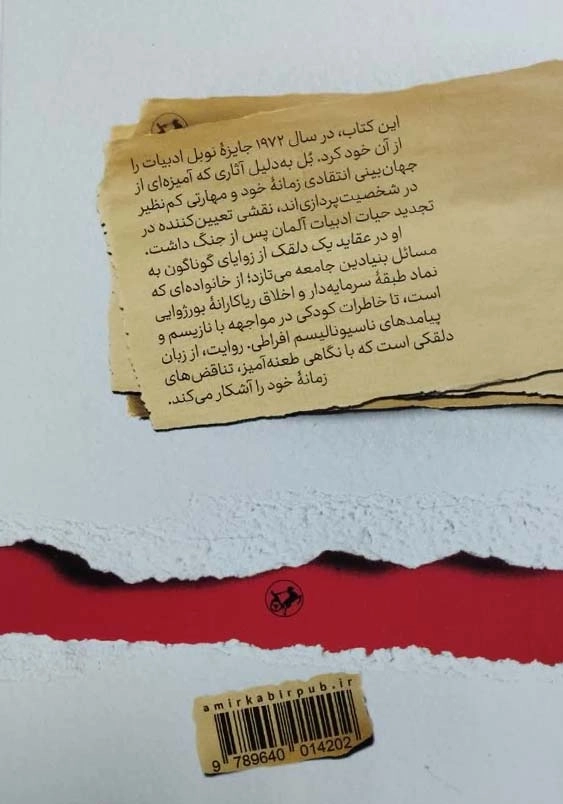 این کتاب، در سال ۱۹۷۲ جایزهٔ نوبل ادبیات را
از آن خود کرد. بُل به‌دلیل آثاری که آمیزه‌ای از
جهان‌بینی انتقادی زمانهٔ خود و مهارتی کم‌نظیر
در شخصیت‌پردازی‌اند، نقشی تعیین‌کننده در
تجدید حیات ادبیات آلمان پس از جنگ داشت.
او در عقاید یک دلقک از زوایای گوناگون به
مسائل بنیادین جامعه می‌تازد؛ از خانواده‌ای که
نماد طبقهٔ سرمایه‌دار و اخلاق ریاکارانهٔ بورژوایی
است، تا خاطرات کودکی در مواجهه با نازیسم و
پیامدهای ناسیونالیسم افراطی. روایت، از زبان
دلقکی است که با نگاهی طعنه‌آمیز، تناقض‌های
زمانهٔ خود را آشکار می‌کند.
amirkabirpub.ir
9 789640 014202